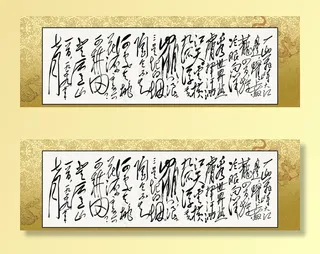 一山飞峙大江
边跃上葱
茏四百旋
冷眼向洋
看世界
热风吹雨洒
江天云横
九派浮黄
鹤浪下
三吴起白烟
陶令不
知何处去桃
花源里
可耕田
登庐山
一山飞峙大江
边跃上葱
茏四百旋
冷眼向洋
看世界
热风吹雨洒
江天云横
九派浮黄
鹤浪下
三吴起白烟
陶令不
知何处去桃
花源里
可耕田
登庐山